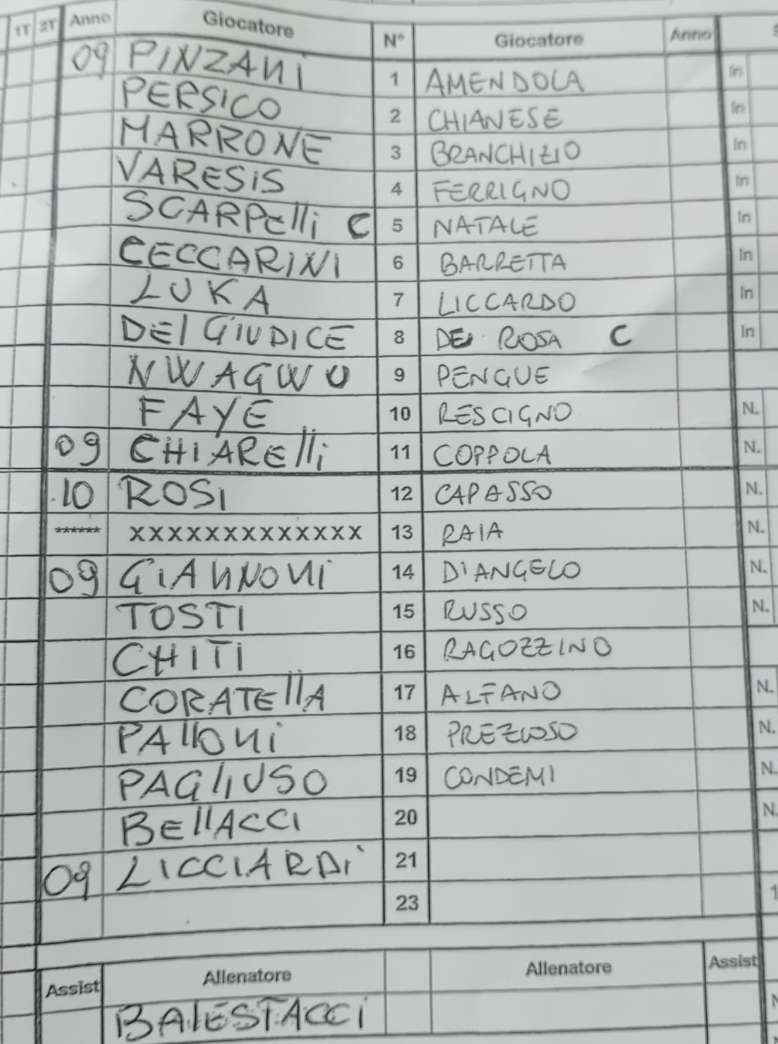 1T 2T Anno Giocatore N° Giocatore Anno
09 PINZANI 1 AMENDOLA In
PERSICO 2 CHIANESE In
MARRONE 3 BRANCHIZIO In
VARESIS 4 FERRIGNO In
SCARPElli C 5 NATALE In
CECCARINI 6 BARRETTA In
LUKA 7 LICCARDO In
DElGIUDICE 8 DE ROSA C In
NWAGWU 9 PENGUE
FAYE 10 RESCIGNO N.
09 CHIARElli 11 COPPOLA N.
10 ROSI 12 CAPASSO N.
****** XXXXXXXXXXXXX 13 RAIA N.
09 GIANNONI 14 D'ANGELO N.
TOSTI 15 RUSSO N.
CHITI 16 RAGOZZINO
CORATEllA 17 ALFANO N.
PAllONI 18 PREZIOSO N.
PAGLIUSO 19 CONDEMI N.
BEllACCI 20 N.
09 LICCIARDI 21
23 1
Assist Allenatore Allenatore Assist
BAlESTACCI